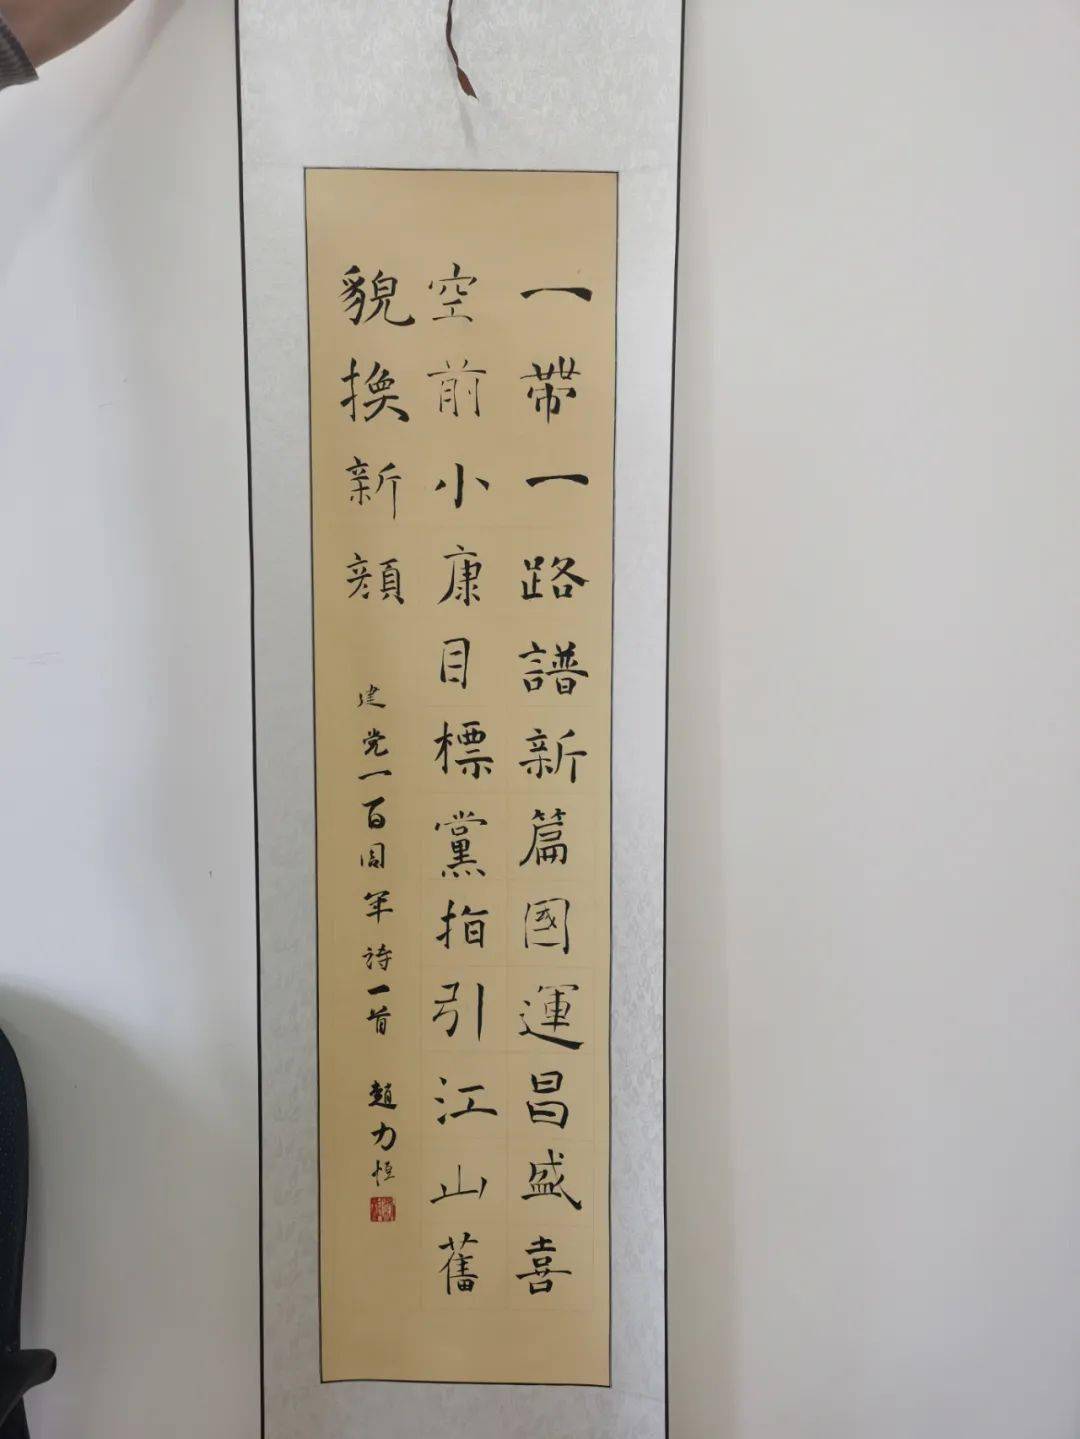 一帶一路譜新篇國運昌盛喜
空前小康目標黨指引江山舊
貌換新顔
建党一百周年詩一首 趙力恒